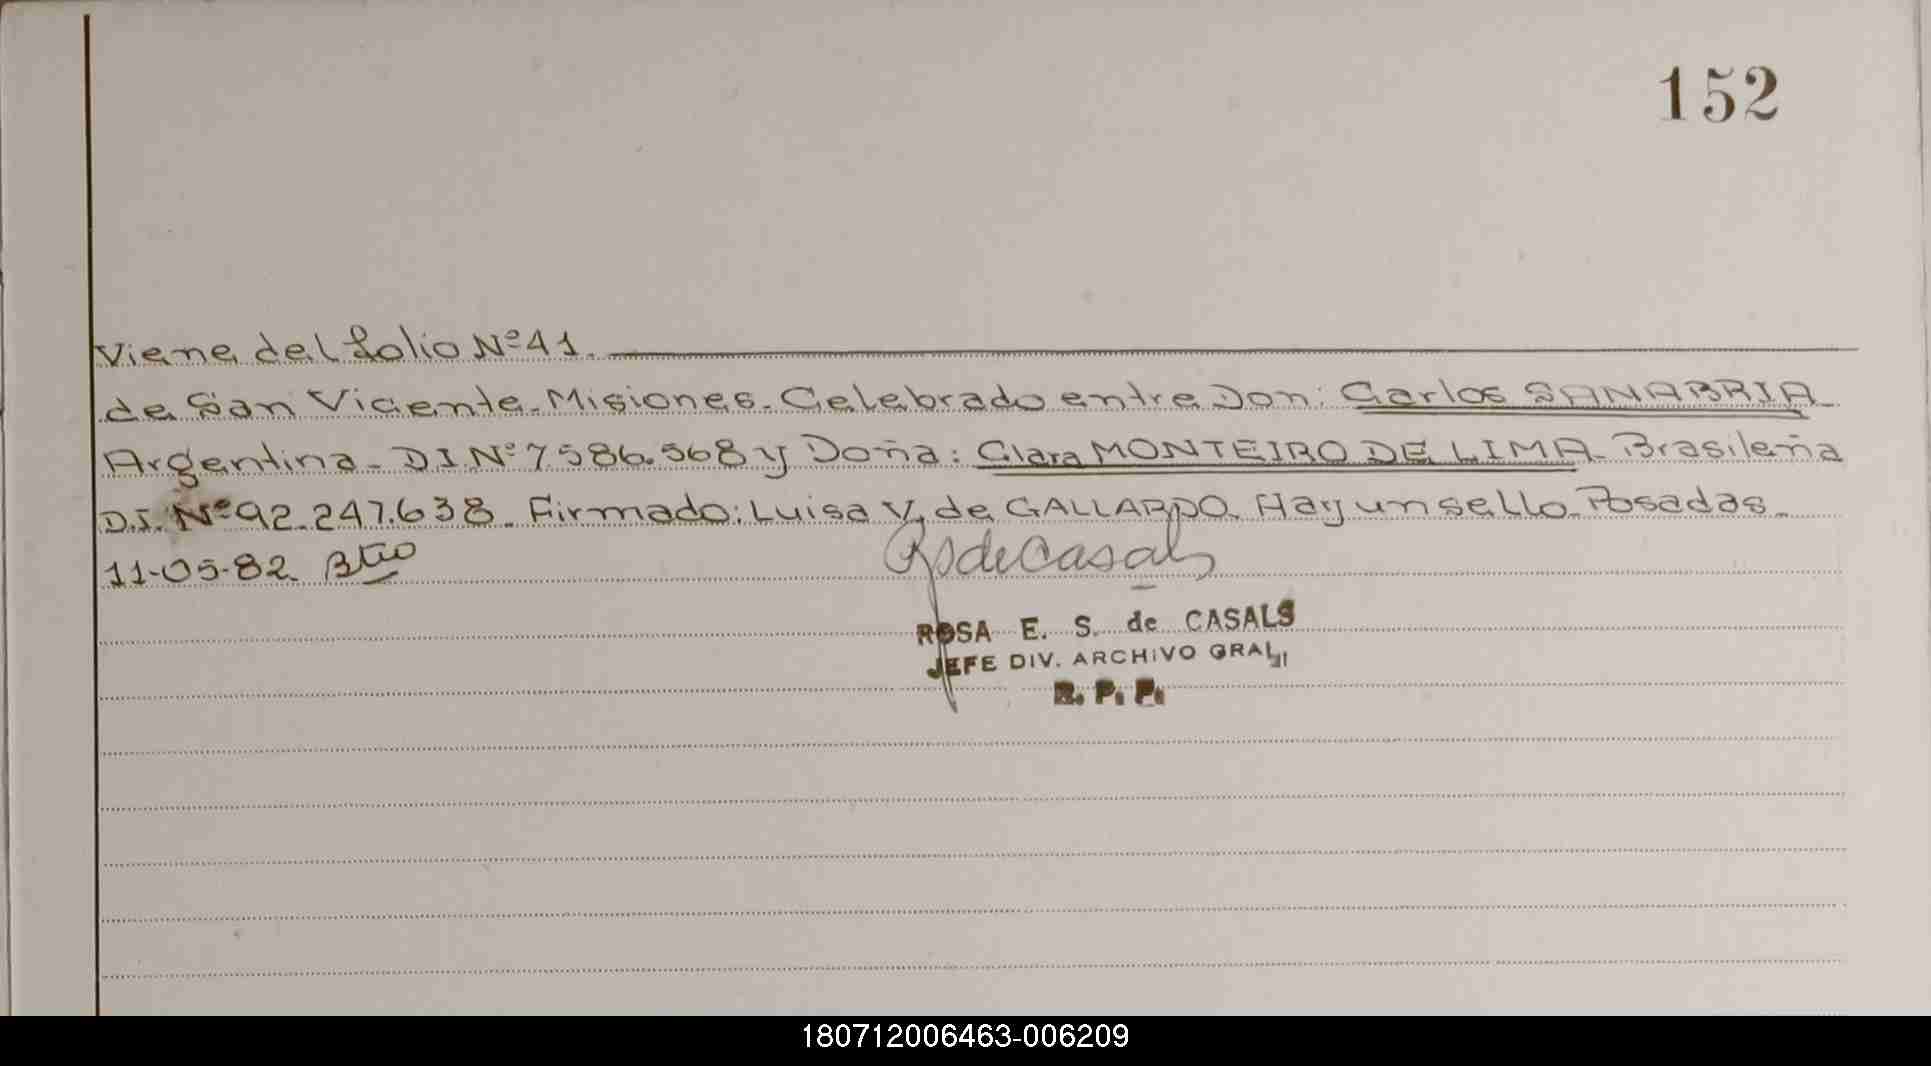 152
Viene del folio Nº 41.
de San Vicente. Misiones. Celebrado entre Don: Carlos SANABRIA
Argentina. D I. Nº 7.586.568 y Doña: Clara MONTEIRO DE LIMA. Brasileña
D.I. Nº 92.247.638. Firmado: Luisa V. de GALLARDO. Hay un sello. Posadas.
11-05-82.
RSdeCasals
ROSA E. S. de CASALS
JEFE DIV. ARCHIVO GRAL
R. P. P.
180712006463-006209